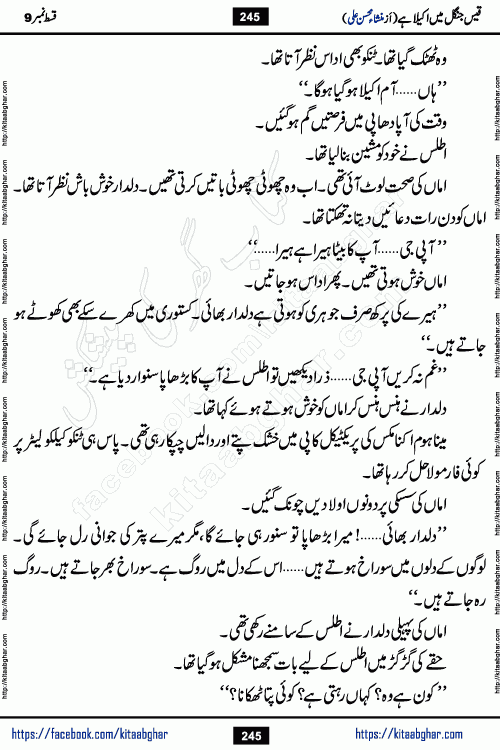 قیس جنگل میں اکیلا ہے (از منشاء محسن علی) 245 قسط نمبر 9
وہ ٹھٹک گیا تھا۔ ٹنکو بھی اداس نظر آتا تھا۔
’’ہاں......آم اکیلا ہو گیا ہو گا۔‘‘
وقت کی آپا دھاپی میں فرصتیں گم ہو گئیں۔
اطلس نے خود کو مشین بنا لیا تھا۔
اماں کی صحت لوٹ آئی تھی۔ اب وہ چھوٹی چھوٹی باتیں کرتی تھیں۔ دلدار خوش باش نظر آتا تھا۔
اماں کو دن رات دعائیں دیتا نہ تھکتا تھا۔
’’آپی جی......آپ کا بیٹا ہیرا ہے ہیرا......‘‘
اماں خوش ہوتی تھیں۔ پھر اداس ہو جاتیں۔
’’ہیرے کی پرکھ صرف جوہری کو ہوتی ہے دلدار بھائی۔ کستوری میں کھرے سکے بھی کھوٹے ہو
جاتے ہیں۔‘‘
’’غم نہ کریں آپی جی......ذرا دیکھیں تو اطلس نے آپ کا بڑھاپا سنوار دیا ہے۔‘‘
دلدار نے ہنس ہنس کر اماں کو خوش ہوتے ہوئے کہا تھا۔
مینا ہوم اکنامکس کی پریکٹیکل کاپی میں خشک پتے اور دالیں چپکا رہی تھی۔ پاس ہی ٹنکو کیلکولیٹر پر
کوئی فارمولا حل کر رہا تھا۔
اماں کی سسکی پر دونوں اولادیں چونک گئیں۔
’’دلدار بھائی......! میرا بڑھاپا تو سنور ہی جائے گا، مگر میرے پتر کی جوانی رل جائے گی۔
لوگوں کے دلوں میں سوراخ ہوتے ہیں......اس کے دل میں روگ ہے۔ سوراخ بھر جاتے ہیں۔ روگ
رہ جاتے ہیں۔‘‘
اماں کی پہیلی دلدار نے اطلس کے سامنے رکھی تھی۔
حقے کی گڑگڑ میں اطلس کے لیے بات سمجھنا مشکل ہو گیا تھا۔
’’کون ہے وہ؟ کہاں رہتی ہے؟ کوئی پتا ٹھکانا؟‘‘
https://facebook.com/kitaabghar 245 https://kitaabghar.com